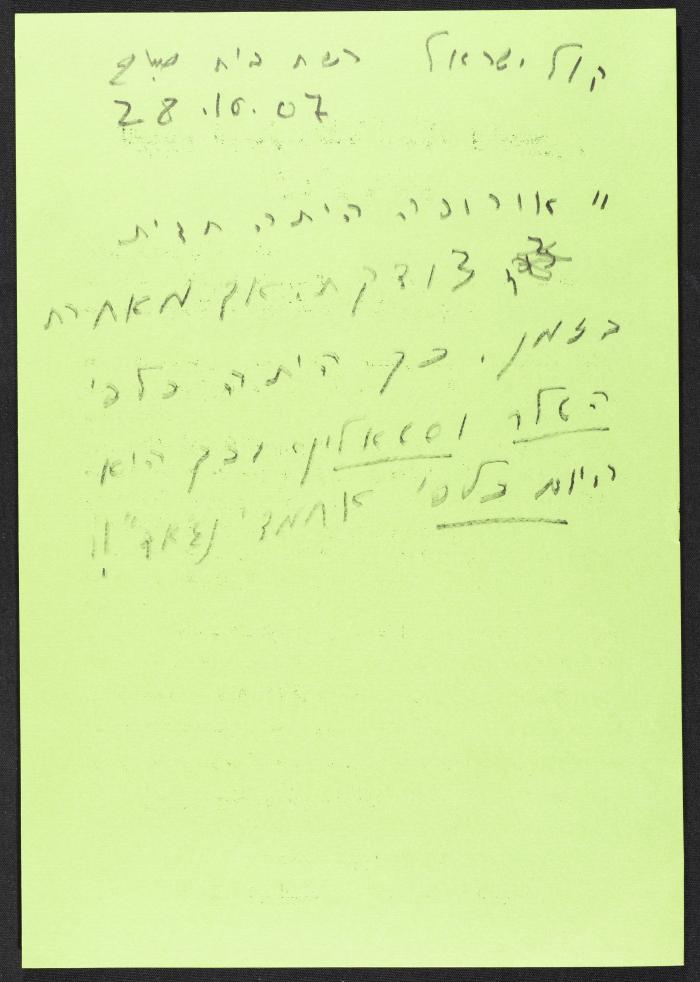 קול ישראל רשת בית
28.10.07
"אירופה היתה תמיד
צודקת. אך מאחרת
בזמן. כך היתה כלפי
היטלר וסטאלין, וכך היא
היום כלפי אחמדי נג'אד"!!